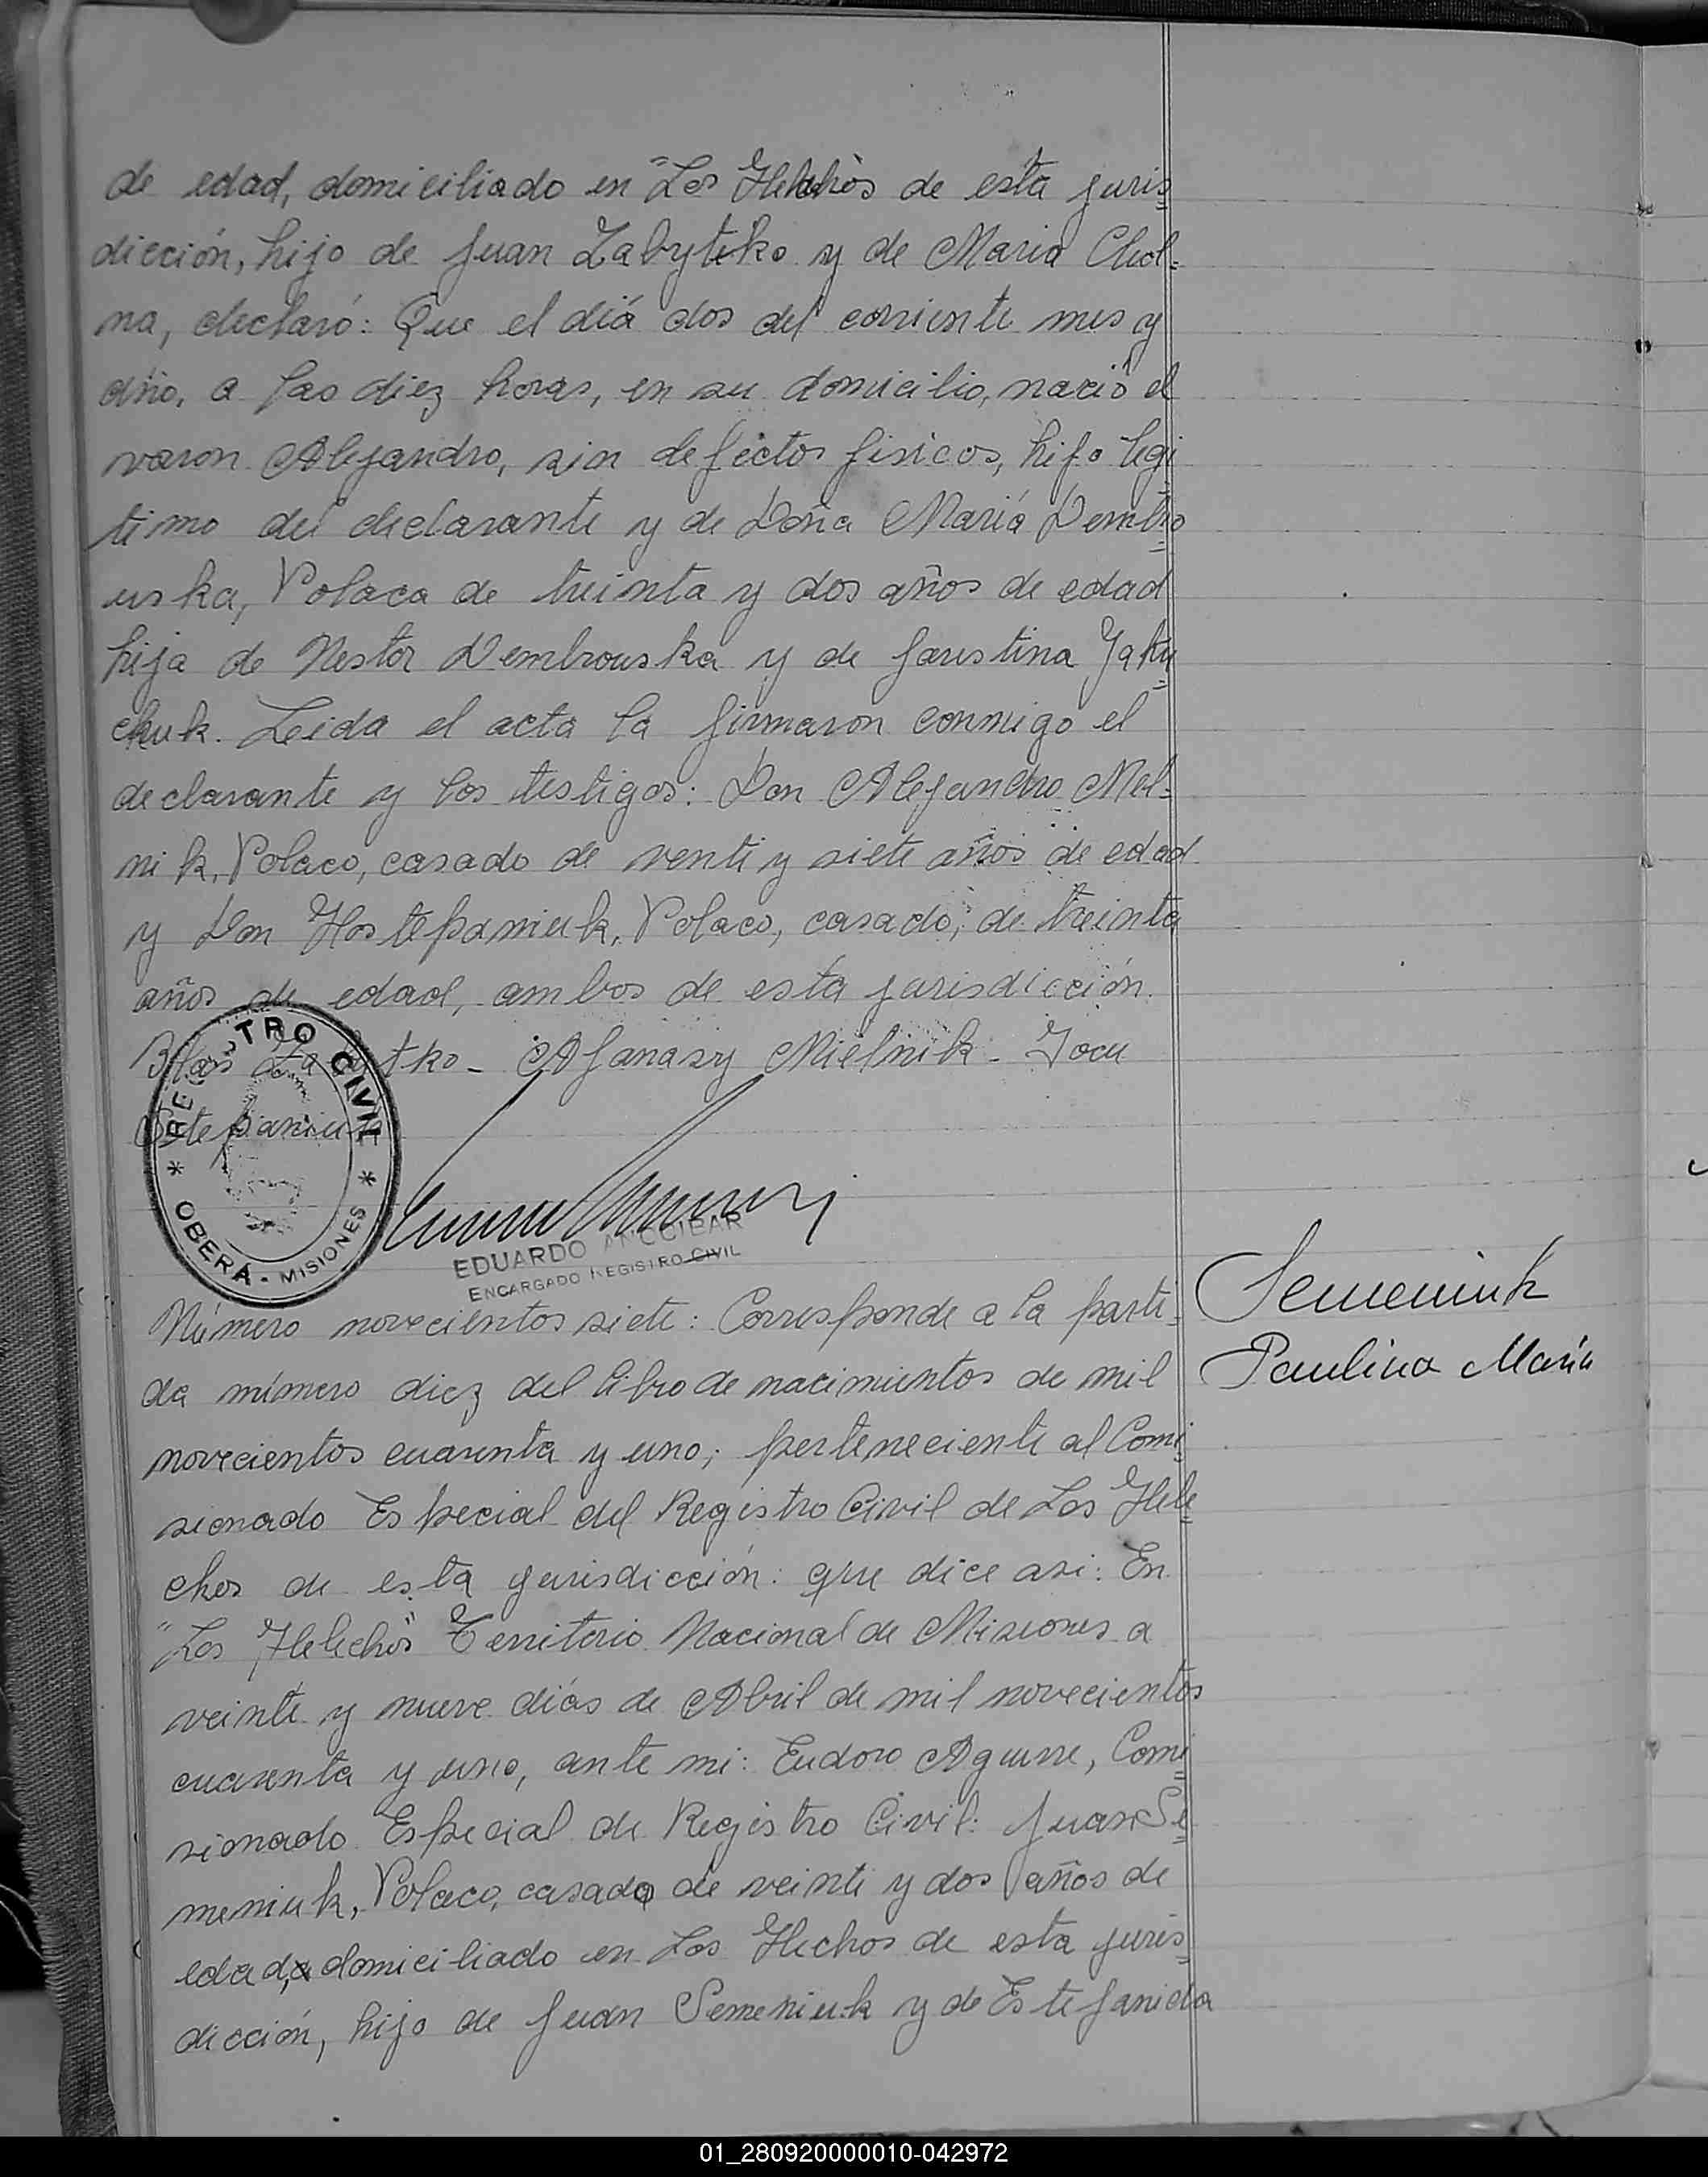 de edad, domiciliado en "Los Helechos de esta juris
dicción, hijo de Juan Zabytko y de Maria Chol=
na, declaró: Que el diá dos del corriente mes y
año, a las diez horas, en su domicilio, nació el
varon Alejandro, sin defectos fisicos, hijo legi
timo del declarante y de Doña Mariá Dembro
uska, Polaca de treinta y dos años de edad
hija de Nestor Dembrouska y de Jaustina Jaku
chuk. Leida el acta la firmaron conmigo el
declarante y los testigos: Don Alejandro Mel=
nik, Polaco, casado de venti y siete años de edad
y Don Hostepaniuk, Polaco, casado, de treinta
años de edad, ambos de esta jurisdicción.
Blas Zabytko - Afanazy Mielnik - Jocu
Stepaniuk
REGISTRO CIVIL
* OBERÁ - MISIONES *
EDUARDO ANOCIBAR
ENCARGADO REGISTRO CIVIL
Semeniuk
Paulina Maria
Número novecientos siete: Corresponde a la parti=
da número diez del libro de nacimientos de mil
novecientos cuarenta y uno; perteneciente al Comi
sionado Especial del Registro Civil de Los Hele
chos de esta jurisdicción: que dice asi: En
"Los Helechos" Territorio Nacional de Misiones a
veinte y nueve diás de Abril de mil novecientos
cuarenta y uno, ante mi: Eudoro Aguirre, Comi
sionado Especial de Registro Civil: Juan Se
meniuk, Polaco, casado de veinti y dos años de
edad, domiciliado en Los Hechos de esta juris
dicción, hijo de Juan Semeniuk y de Estefanida
01_280920000010-042972